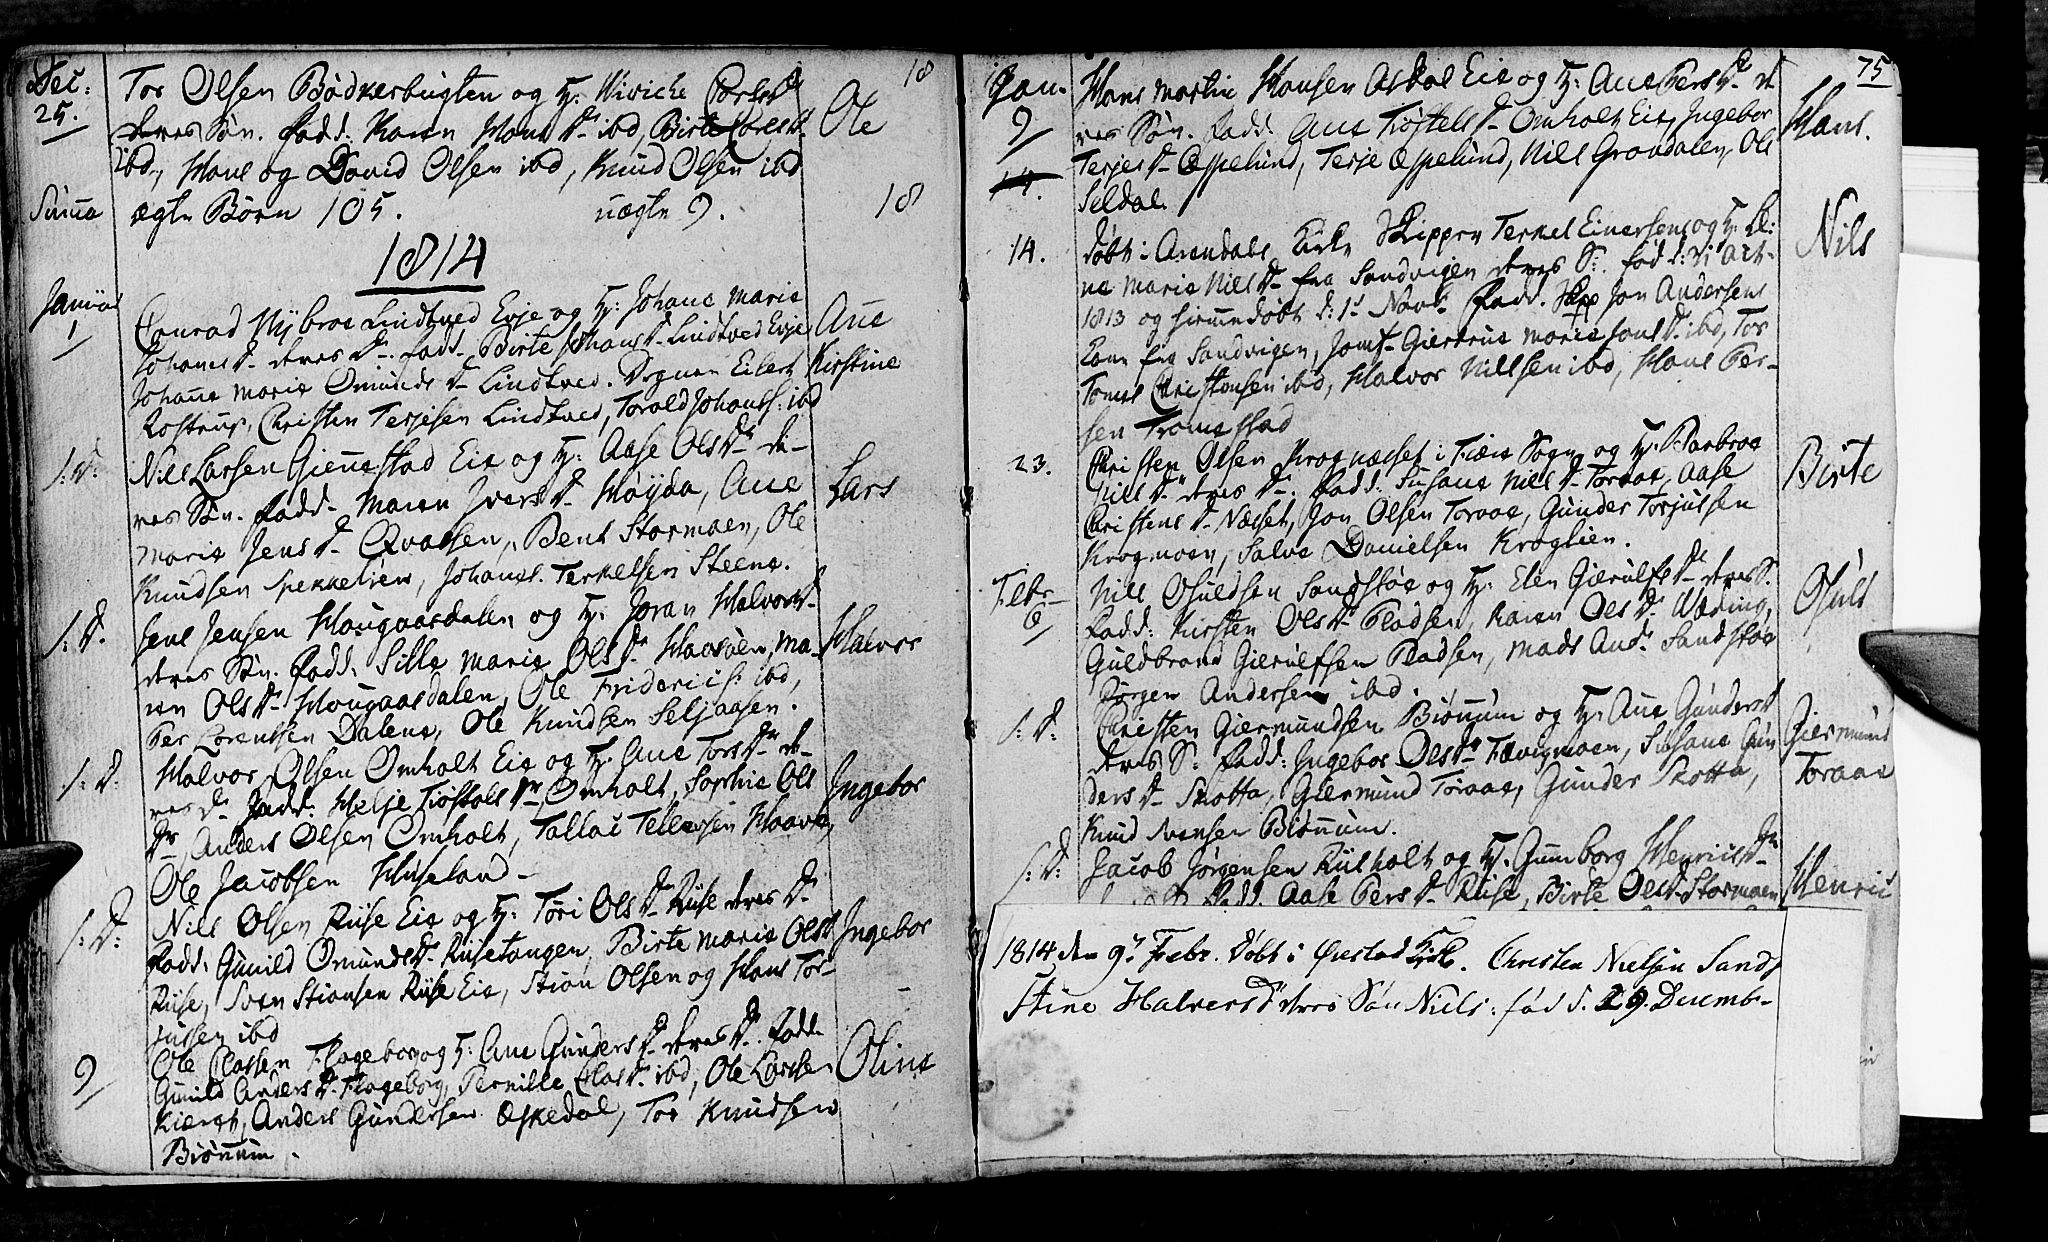 Dec:
25.
Tor Olsen Bödkerbugten og H: Wiviche
deres Søn. Fadd: Karen Hans D. ibd, Birte
ibd, Hans og David Olsen ibd, Knud Olsen ibd
Ole
18
Suma ægte Børn 105. uægte 9. 18
1814
Januar
1
Conrad Nybroe Lindtved Eje og H: Johane Marie
Johans D. deres D. Fadd. Birte Johans D. Lindtved Eje
Johane Marie Omunds D. Lindtved. Eilert
Rostrup, Christen Terjesen Lindtved, Torald Johans: ibd
Ane
Kirstine
S: D:
Nils Larsen Giennestad Eie og H: Aase Ols Dr. de-
res Søn. Fadd. Maren Ivers D. Höyda, Ane
Marie Jens D. Qvalsen, Bent Stormoen, Ole
Knudsen Spekkelien, Johans. Terkelsen Steene.
Lars
S: D.
Jens Jensen Hougaasdalen og H: Joran Halvors D.
deres Søn. Fadd: Sille Marie Ols D. Haavsöen, Ma-
ren Ols D. Hougaasdalen, Ole Fridericks: ibd,
Per Lorentsen Dalene, Ole Knudsen Seljaasen.
Halvor
S: D:
Halvor Olsen Omholt Eie og H: Ane Tors Dr. de-
res D. Fadd: Helje Tröstels Dr. Omholt, Sophie Ols
Dr. Anders Olsen Omholt, Tallac Tellevsen Haave,
Ole Jacobsen Huseland -
Ingebor
S: D:
Nils Olsen Riise Eie og H: Töri Ols D. Riise deres D.
Fadd: Gunild Omunds D. Riisetangen, Birte Marie Ols D.
Riise, Sven Stiansen Riise Eie, Stian Olsen og Hans Tor-
jussen ibd
Ingebor
9
Ole Classen Flageborg og H: Ane Gunders D. deres D. Fadd.
Gunild Anders D. Flageborg, Pernille Clas D. ibd, Ole Larsen
Kiæret, Anders Gundersen Æskedal, Tor Knudsen
Biönnum.
Oline
75
Jan.
9
Hans Martin Hansen Asdal Eie og H: Ane Pers D. de
res Søn. Fadd. Ane Tröstels D. Omholt Eie, Ingebor
Terjes D. Espelund, Terje Espelund, Nils Grandalen, Ole
Seldal.
Hans.
14.
Döbt i Arendals Kirke Skipper Terkel Einersen og H: El:
ne Marie Nils D. fra Sandvigen deres S: fød
1813 og hiemmedöbt d: 1. Novb. Fadd. Skipp Jon Andersens
Kone fra Sandvigen, Jomf. Giertrue Marie Jons D. ibd, Tor
Tomas Christensen ibd, Halvor Nillsen ibd, Hans Per-
sen Tromestad
Nils
23.
Christen Olsen Krognæsset i Fiære Sogn og H: Barbroe
Nills D. deres D. Fadd: Susane Nils D. Toraae, Aase
Christens D. Næsset, Jon Olsen Toraae, Gunder Torjussen
Krogmoen, Salve Danielsen Kroglien.
Birte
Febr
6
Nill Osuldsen Sandstöe og H: Elen Gierulfs D. deres S.
Fadd: Kirsten Ols D. Pladsen, Karen Ols D. Weding,
Guldbrand Gierulfsen Pladsen, Mads And: Sandstöe
Jörgen Andersen ibd.
Osuld
S: D:
Christen Giermundsen Biönnum og H: Ane Gunders D.
deres S: Fadd: Ingebor Ols D. Fævigmoen, Susane Gun
ders D. Skotta, Giermund Toraae, Gunder Skotta,
Knud Svensen Biönnum.
Giermund
Toraae
S: D:
Jacob Jörgensen Riisholt og H: Gunnborg Henrics D.
Fadd. Aase Pers D. Riise, Birte Ols D. Stormoen
Henric
1814 den 9de Febr. Døbt i Øiestad Kirke. Christen Nielsen Sand
Stine Halvers D. deres Søn Niels: fød d. 29. Decemb-